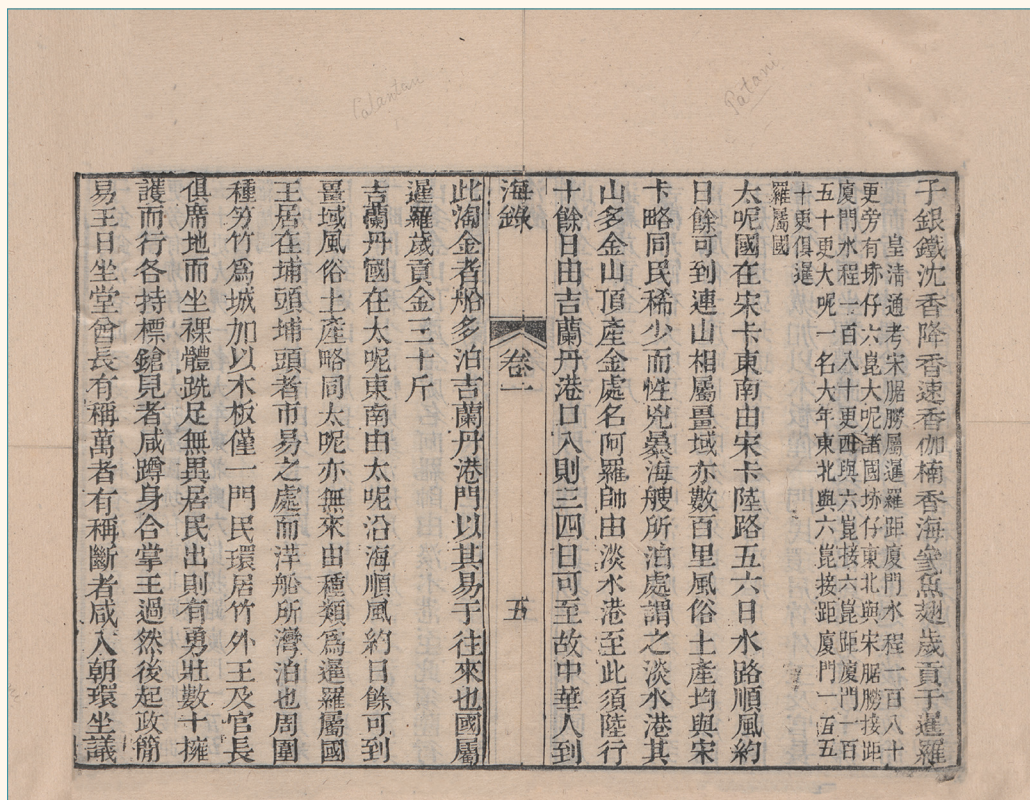 Patani
Calantan
子銀鐵沈香降香速香伽楠香海參魚翅歲貢于暹羅
皇清通考宋腒朥屬暹羅距廈門水程一百八十
更旁有埭仔六崑大呢諸國埭仔東北與宋腒朥接距
廈門水程一百八十更西與六崑接六崑距廈門一百
五十更大呢一名大年東北與六崑接距廈門一百五
十更俱暹
羅屬國
太呢國在宋卡東南由宋卡陸路五六日水路順風約
日餘可到連山相屬畺域亦數百里風俗土產均與宋
卡略同民稀少而性兇暴海艘所泊處謂之淡水港其
山多金山頂產金處名阿羅帥由淡水港至此須陸行
十餘日由吉蘭丹港口入則三四日可至故中華人到
海錄 卷一 五
此淘金者船多泊吉蘭丹港門以其易于往來也國屬
暹羅歲貢金三十斤
吉蘭丹國在太呢東南由太呢沿海順風約日餘可到
畺域風俗土產略同太呢亦無來由種類爲暹羅屬國
王居在埔頭埔頭者市易之處而洋船所灣泊也周圍
種竻竹爲城加以木板僅一門民環居竹外王及官長
俱席地而坐裸體跣足無異居民出則有勇壯數十擁
護而行各持標鎗見者咸蹲身合掌王過然後起政簡
易王日坐堂酋長有稱萬者有稱斷者咸入朝環坐議